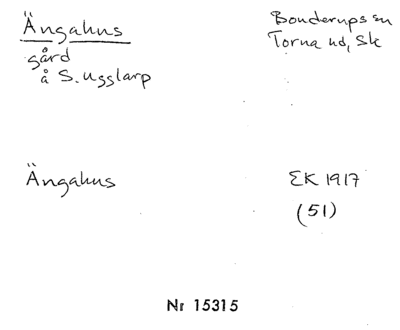 Ängahus
gård
å S. Ugglarp
Bonderups sn
Torna hd, Sk
Ängahus
EK 1917
(51)
Nr 15315